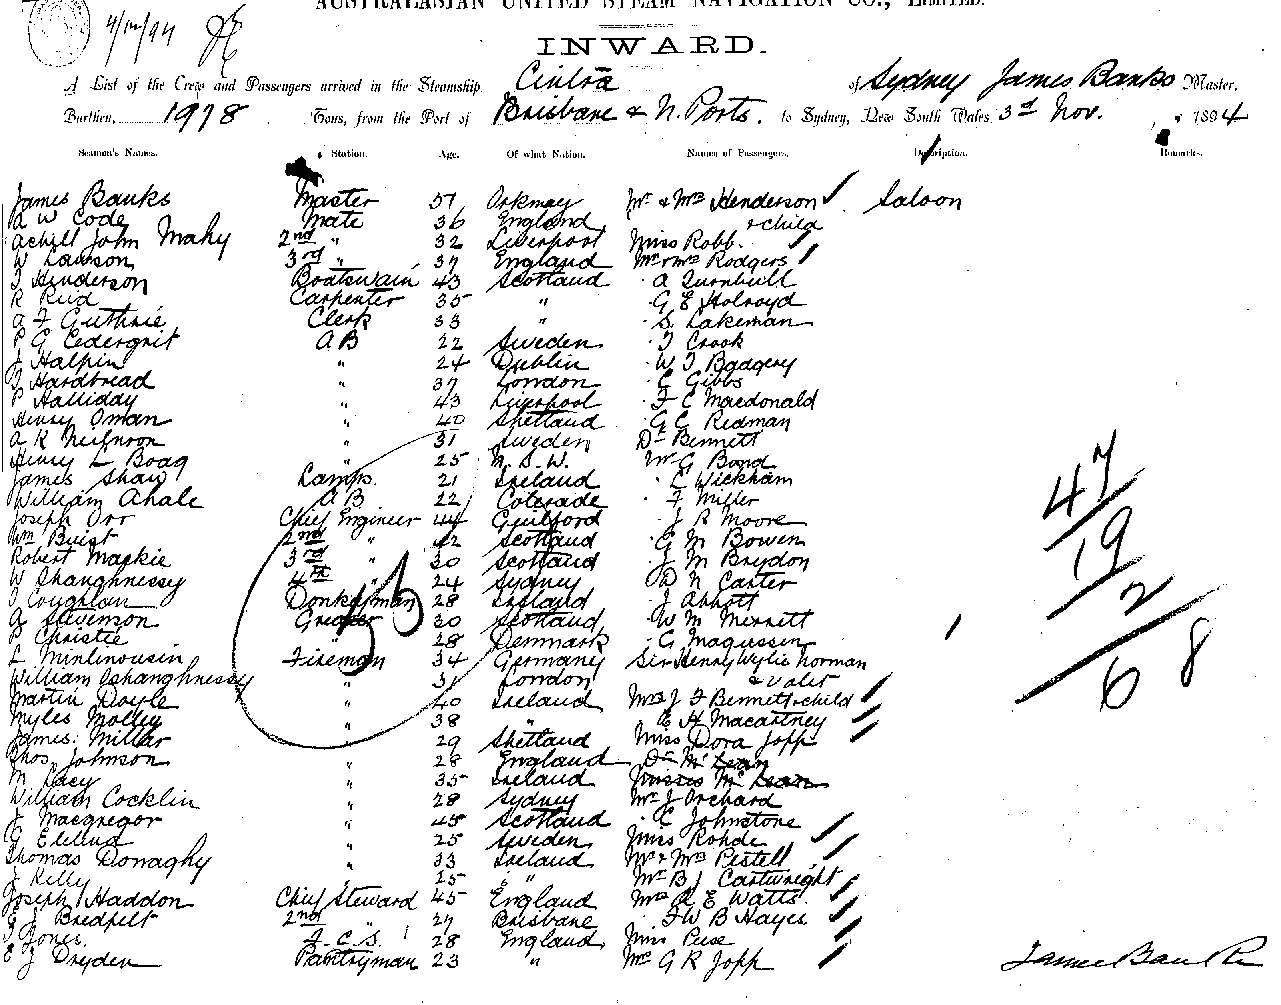 AUSTRALASIAN UNITED STEAM NAVIGATION CO., LIMITED.
4/12/94
INWARD.
A List of the Crew and Passengers arrived in the Steamship Cintra of Sydney James Banks Master,
Burthen, 1978 Tons, from the Port of Brisbane & N. Ports. to Sydney, New South Wales, 3rd Nov. 1894
Seamen's Names. Station. Age. Of what Nation. Names of Passengers. Description. Remarks.
James Banks Master 57 Orkney Mr & Mrs Henderson Saloon
R W Code Mate 36 England & child
Achill John Mahy 2nd " 32 Liverpool Miss Robb.
W Lawson 3rd " 37 England Mr & Mrs Rodgers
J Henderson Boatswain 43 Scotland A Turnbull
R Reid Carpenter 35 " G E Holroyd
A F Guthrie Clerk 33 " S. Lakeman
P G Cedergrit AB 22 Sweden J Crook
J Halpin " 24 Dublin W J Badgery
J Hardbread " 37 London C Gibbs
P Halliday " 43 Liverpool F C Macdonald
Henry Oman " 40 Shetland G C Redman
A K Neilnson " 31 Sweden Dr Bennett
Henry L Boag " 25 N. S. W. Mr G Bond
James Shaw Lamps. 21 Ireland C Wickham
William Ahale AB 22 Colorade F Miller
Joseph Orr Chief Engineer 44 Guilford J R Moore
Wm Buist 2nd " 42 Scotland G M Bowen
Robert Mackie 3rd " 30 Scotland J M Brydon
W Shanghnessey 4th " 24 Sydney D N Carter
J Coughlan Donkeyman 28 Ireland J Abbott
A Stevenson Greaser 30 Scotland W M Merrett
P Christie " 28 Denmark C Magussen
L Minlinousin Fireman 34 Germany Sir Henry Wylie Norman
William Oshanghnessy " 31 London & valet
Martin Doyle " 40 Ireland Mrs J F Bennett & child
Myles Molley " 38 " E H Macartney
James Millar " 29 Shetland Miss Dora Jopp
Thos Johnson " 28 England Dr McLean
M Lacy " 35 Ireland Misses McLean
William Cocklin " 28 Sydney Mr J Orchard
J Macgregor " 45 Scotland C Johnstone
G Eklund " 25 Sweden Miss Rohde
Thomas Donaghy " 33 Ireland Mr & Mrs Pestell
J Kelly " 25 " Mr B J Cartwright
Joseph Haddon Chief Steward 45 England Mrs R E Watts.
E J Bredfelt 2nd " 27 Brisbane F W B Hayes
J Jones. F. C. S. 28 England Miss Pese
E J Dryden Pantryman 23 " Mr G R Jopp
47
19
2
68
James Banks